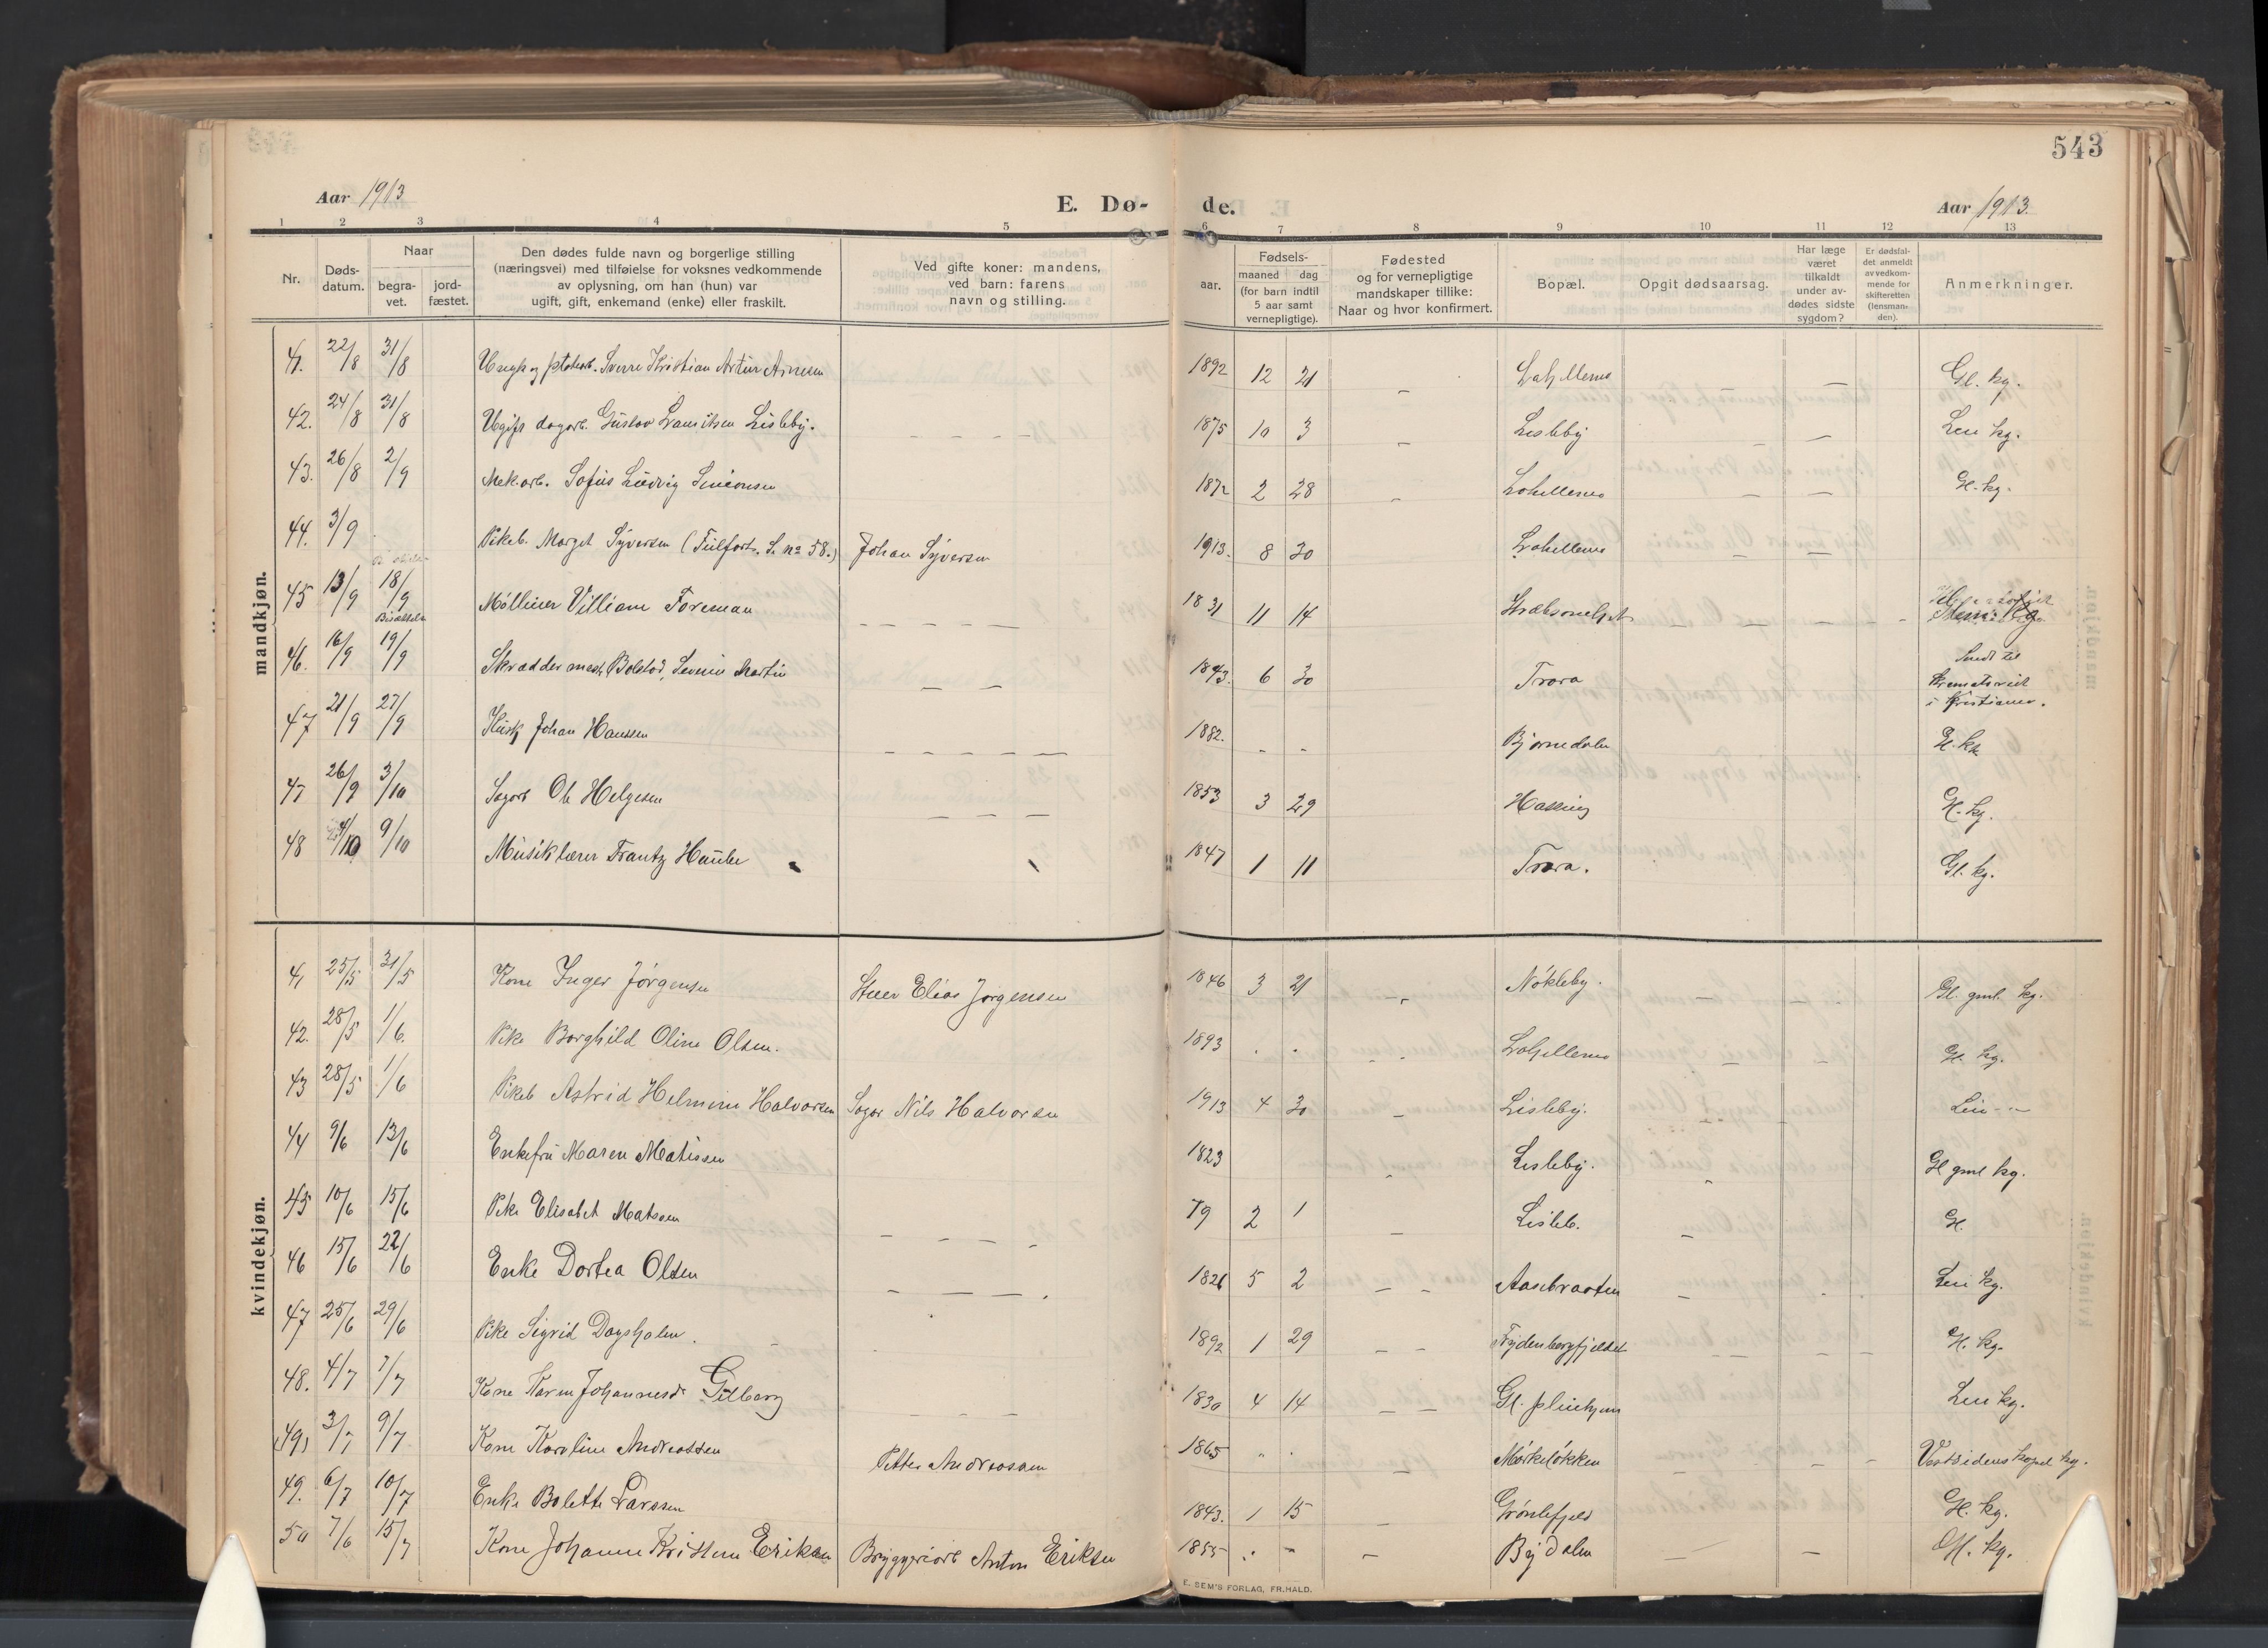 543
Aar 1913
E. Dø- de.
Aar 1913.
1 2 3 4 5 6 7 8 9 10 11 12 13
Nr.
Døds-
datum.
Naar
begra-
vet.
jord-
fæstet.
Den dødes fulde navn og borgerlige stilling
(næringsvei) med tilføielse for voksnes vedkommende
av oplysning, om han (hun) var
ugift, gift, enkemand (enke) eller fraskilt.
Ved gifte koner: mandens,
ved barn: farens
navn og stilling.
Fødsels-
aar.
maaned dag
(for barn indtil
5 aar samt
vernepligtige).
Fødested
og for vernepligtige
mandskaper tillike:
Naar og hvor konfirmert.
Bopæl.
Opgit dødsaarsag.
Har læge
været
tilkaldt
under av-
dødes sidste
sygdom?
Er dødsfal-
det anmeldt
av vedkom-
mende for
skifteretten
(lensman-
den).
Anmerkninger.
mandkjøn.
41. 22/8 31/8 Sverre Kristian Artur Arnesen 1892 12 21 — Gl. kg.
42. 24/8 31/8 Ugift dagarb. Gustav Lauritsen Lisleby. 1875 10 3 — Lisleby — Leie kg.
43. 26/8 2/9 Mek.arb. Sofus Ludvig Simonsen 1872 2 28 — — Gl. kg.
44. 3/9 Pikeb. Margit Syversen ( L. no 58.) Johan Syversen 1913. 8 30 — —
45 13/9 18/9 Møllner Villiam Foreman — 1831 11 14
Bisættelse
46. 16/9 19/9 Skræddermest. Bolstad, Severin Martin — — 1843. 6 30 Trara Sendt til
Krematoriet
i Kristiania.
47 21/9 27/9 Husk Johan Hanssen — 1882. - - Bjørnedalen Gl. kg.
47 26/9 3/10 Sagarb Ole Helgesen — 1853 3 29 Hassing Gl. kg.
48 4/10 9/10 Musiklærer Frantz Haube 1847 1 11 Trara. Gl. kg.
kvindekjøn.
41 25/5 31/5 Kone Inger Jørgensen Elias Jørgensen 1846 3 21 - Nøkleby. — Gl. gml. kg.
42. 28/5 1/6. Pike Borghild Oline Olsen. 1893 . . — Gl. kg.
43 28/5 1/6 Pikeb Astrid Helmine Halvorsen Sagar Nils Halvorsen 1913 4 30 — Lisleby. Leie -"-
44 9/6 13/6 Enkefru Maren Matissen 1823 Lisleby. Gl gml kg.
45 10/6 15/6 Pike Elisabet Matsson — 79 2 1 — Lisleb. — Gl.
46 15/6 22/6 Enke Dortea Olsen — 1826 5 2 — — Aasebraaten — Leie kg.
47 25/6 29/6 Pike Sigrid Dagsholm. 1892 1 29 — — Frydenbergfjeldet Gl. kg.
48. 4/7 7/7 Kone Karen Johannesd. Gilberg — 1830 4 14 — — Gl. pleiehjem Leie kg.
49) 3/7 9/7 Kone Karoline Andreassen Petter Andreassen 1865 " . Mørkeløkken Vestsidens kapel kg.
49. 6/7 10/7 Enke Bolette Larssen 1843. 1 15 — Grønlifjeld Gl. kg.
50 7/6 15/7 Kone Johanne Kristine Eriksen Bryggeriarb Anton Eriksen 1855 . - — Bydalen — Gl. kg.
E. SEM'S FORLAG, FR.HALD.